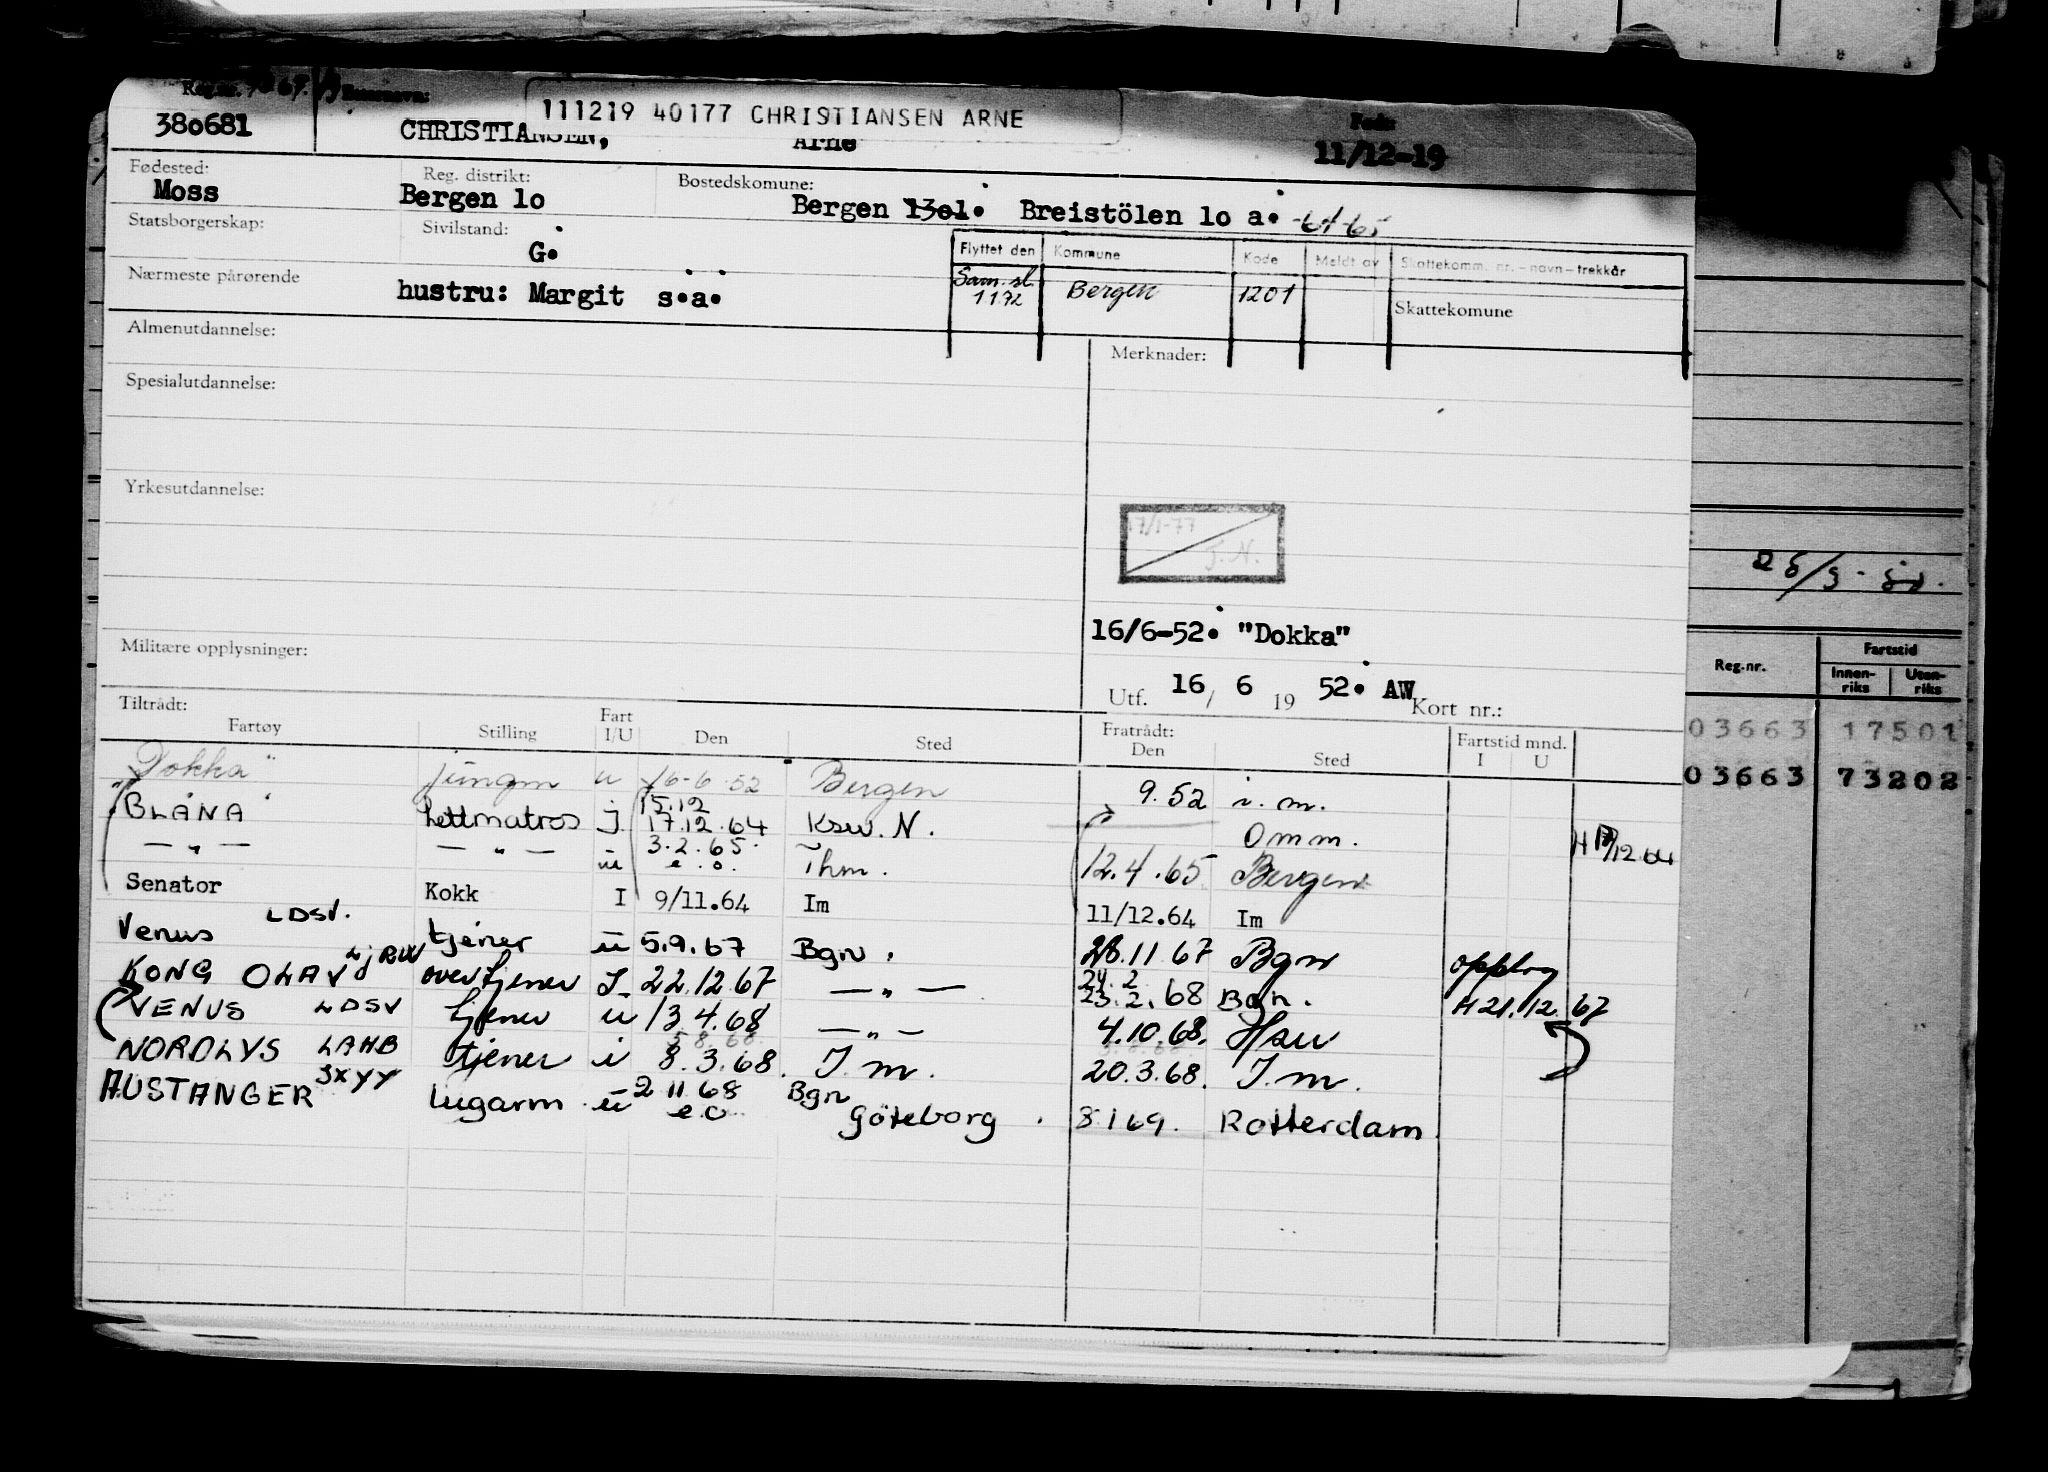 111219 40177 CHRISTIANSEN ARNE
Reg.nr.
380681 CHRISTIANSEN, Arne Født: 11/12-19
Fødested: Reg. distrikt: Bostedskomune:
Moss Bergen 10 Bergen 1301. Breistölen 10 a. -64-65
Statsborgerskap: Sivilstand:
G.
Flyttet den Kommune Kode Meldt av Skattekomm. nr. - navn - trekkår
Nærmeste pårørende
hustru: Margit s.a.
Sam. sl. 1 1 72 Bergen 1201 Skattekomune
Almenutdannelse: Merknader:
Spesialutdannelse:
Yrkesutdannelse:
17/1-77
J.N.
16/6-52. "Dokka"
Militære opplysninger:
Utf. 16 / 6 19 52. AW Kort nr.:
Tiltrådt: Fratrådt:
Fartøy Stilling Fart I/U Den Sted Den Sted Fartstid mnd. I U
"Dokka" jungm u 16-6-52 Bergen 9.52 i.m.
"BLÅNA" Lettmatros j 15.12 17.12.64 Ksu. N. Omm. H 17/12 64
— " — — " — u 3.2.65 e.o. Thm. 12.4.65 Bergen
Senator Kokk I 9/11.64 Im 11/12.64 Im
Venus LDSV. tjener u 5.9.67 Bgn. 28.11 67 Bgn opplag
KONG OLAV LJRW overtjener I 22.12.67 — " — 24.2 23.2.68 Bgn. H 21.12.67
VENUS LDSV tjener u 13 4.68 — " — 4.10.68. Hau
NORDLYS LAHB tjener i 8.3.68. I.m. 20.3.68. I.m.
AUSTANGER JXYY lugarm u 2 11.68 e.o. Bgn Göteborg. 8 1 69. Rotterdam
Reg.nr. Fartstid
Innen-riks Uten-riks
03663 17501
03663 73202